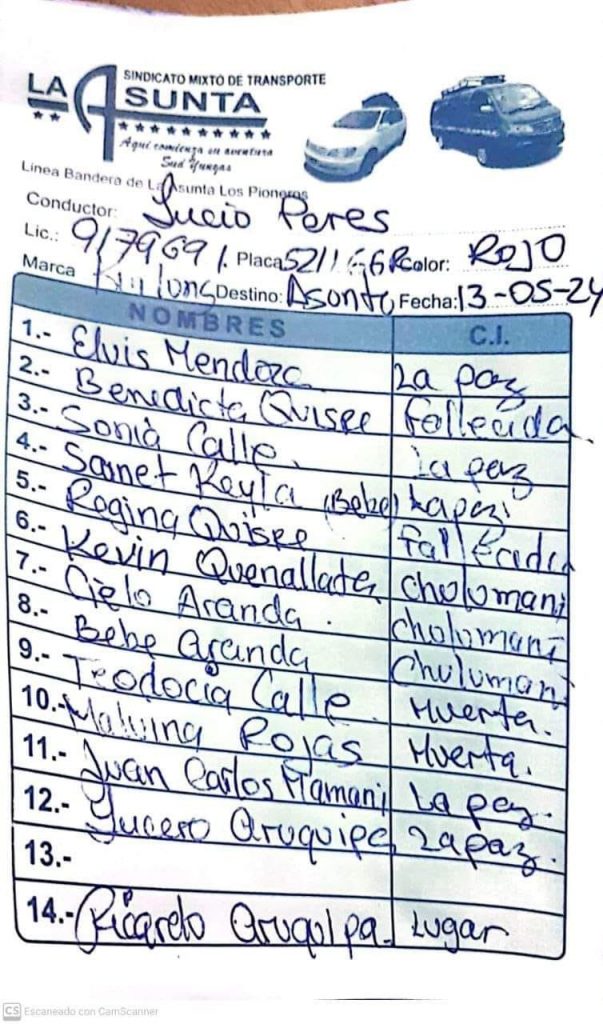 SINDICATO MIXTO DE TRANSPORTE
LA ASUNTA
Aqui comienza su aventura
Sud Yungas
Linea Bandera de La Asunta Los Pioneros
Conductor: Lucio Peres
Lic.: 9179691. Placa 5211 GGR Color: ROJO
Marca Destino: Asonta Fecha: 13-05-24
NOMBRES C.I.
1.- Elvis Mendoza La paz
2.- Benedicta Quispe fallecida.
3.- Sonia Calle. La paz
4.- Samet Keyla (Bebe) Lapaz
5.- Regina Quispe fallecida
6.- Kevin Quenallata Cholomani
7.- Cielo Aranda. Cholumani
8.- Bebe aranda Chulumani
9.- Teodocia Calle. Muerta.
10.- Malvina Rojas Muerta.
11.- Juan Carlos Mamani La paz.
12.- Lucero Aruquipa Lapaz.
13.-
14.- Ricardo Aruquipa. Lugar
CS Escaneado con CamScanner